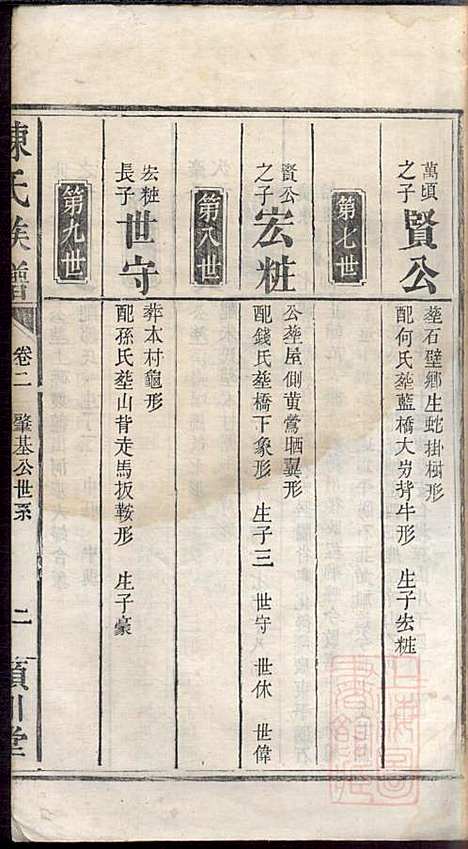 萬頃之子 賢公
塟石壁鄉生蛇掛樹形
配何氏塟藍橋大岃犕牛形 生子宏粧
第七世
賢公之子 宏粧
公塟屋側黄鶯晒翼形
配錢氏塟橋下象形 生子三 世守 世休 世偉
第八世
宏粧長子 世守
葬本村龜形
配孫氏塟山背走馬扳鞍形 生子豪
第九世
陳氏族譜 卷二 肇基公世系 二 潁川堂